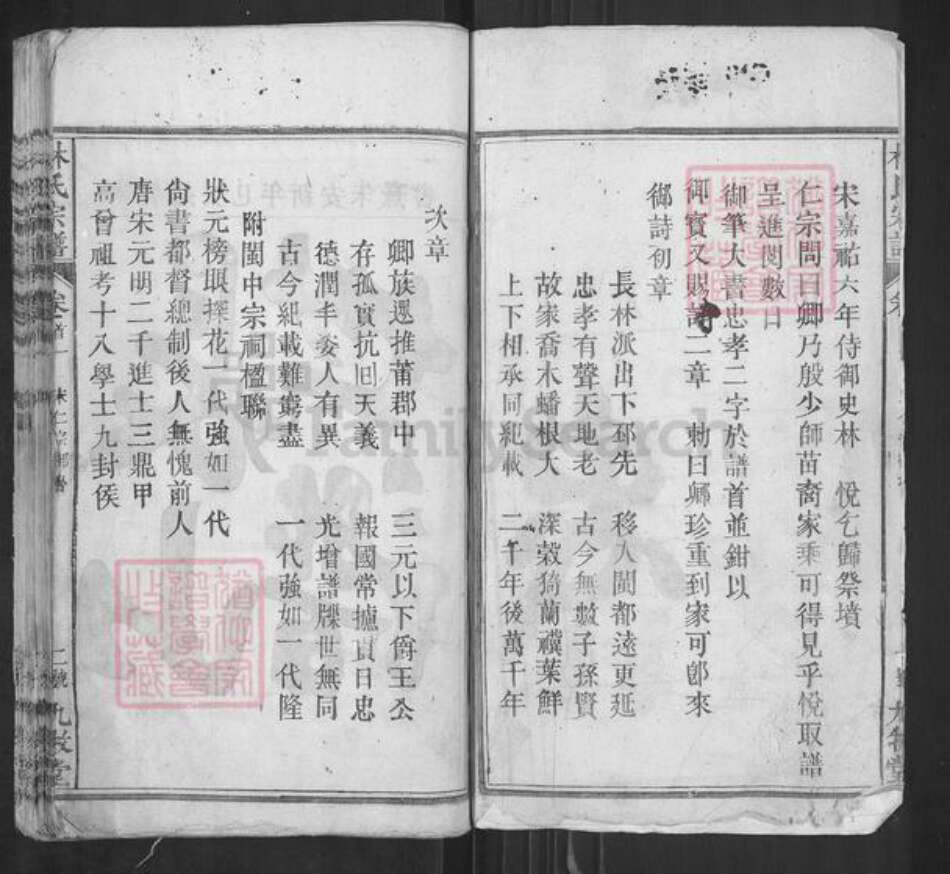 宋嘉祐六年侍御史林 悅乞歸祭墳
仁宗問曰卿乃殷少師苗裔家乘可得見乎悅取譜
呈進閱數日
御筆大書忠孝二字於譜首並鉗以
御寶又賜詩二章 勅曰卿珍重到家可卽來
御詩初章
長林派出下邳先 移入閩都遠更延
忠孝有聲天地老 古今無數子孫賢
故家喬木蟠根大 深榖猗蘭襪葉鮮
上下相承同紀載 二千年後萬千年
次章
卿族還推莆郡中 三元以下爵王公
存孤實抗囘天義 報國常攄貫日忠
德潤丰姿人有異 光增譜牒世無同
古今紀載難窮盡 一代強如一代隆
附閩中宗祠楹聯
狀元榜眼探花一代強如一代
尙書都督總制後人無愧前人
唐宋元明二千進士三鼎甲
高曾祖考十八學士九封侯
林氏宗譜
卷首一
宋仁宗御書
二號
九牧堂
FamilySearch